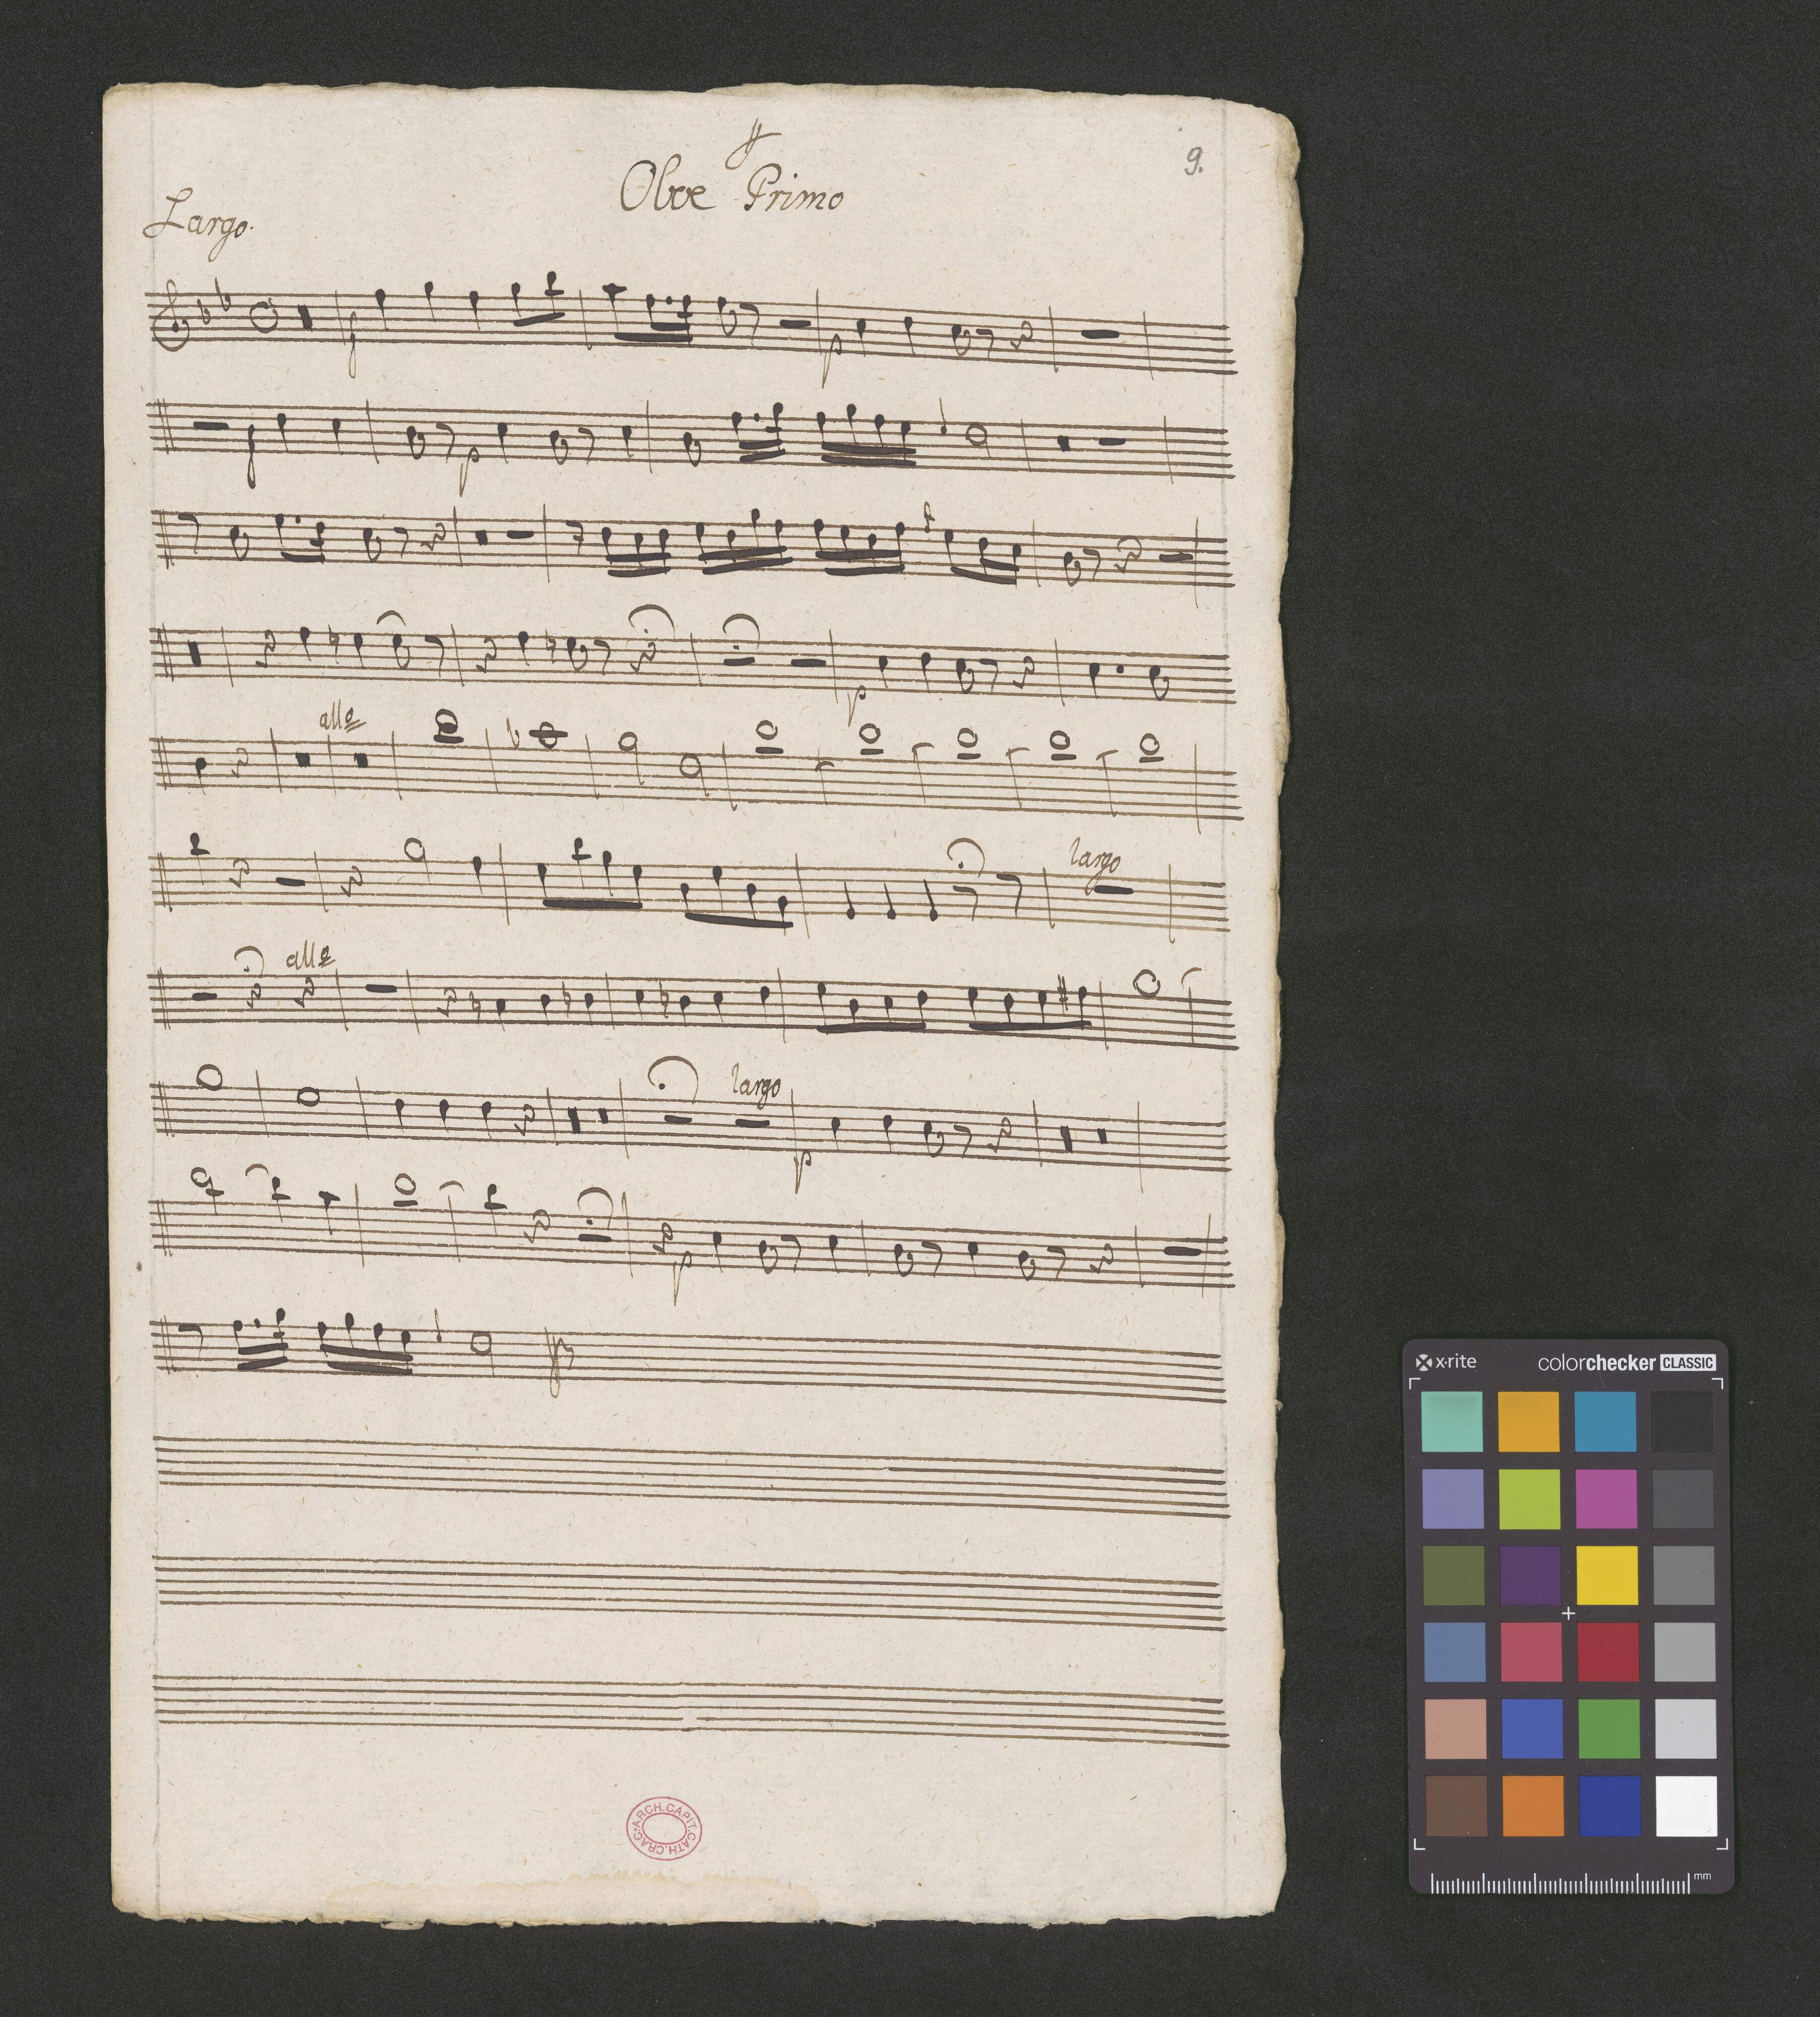 9.
Oboe Primo
Largo.
f
p
f
p
p
allo
largo
allo
largo
p
p
ARCH.CAPIT.CATH.CRAC.
x·rite colorchecker CLASSIC
mm